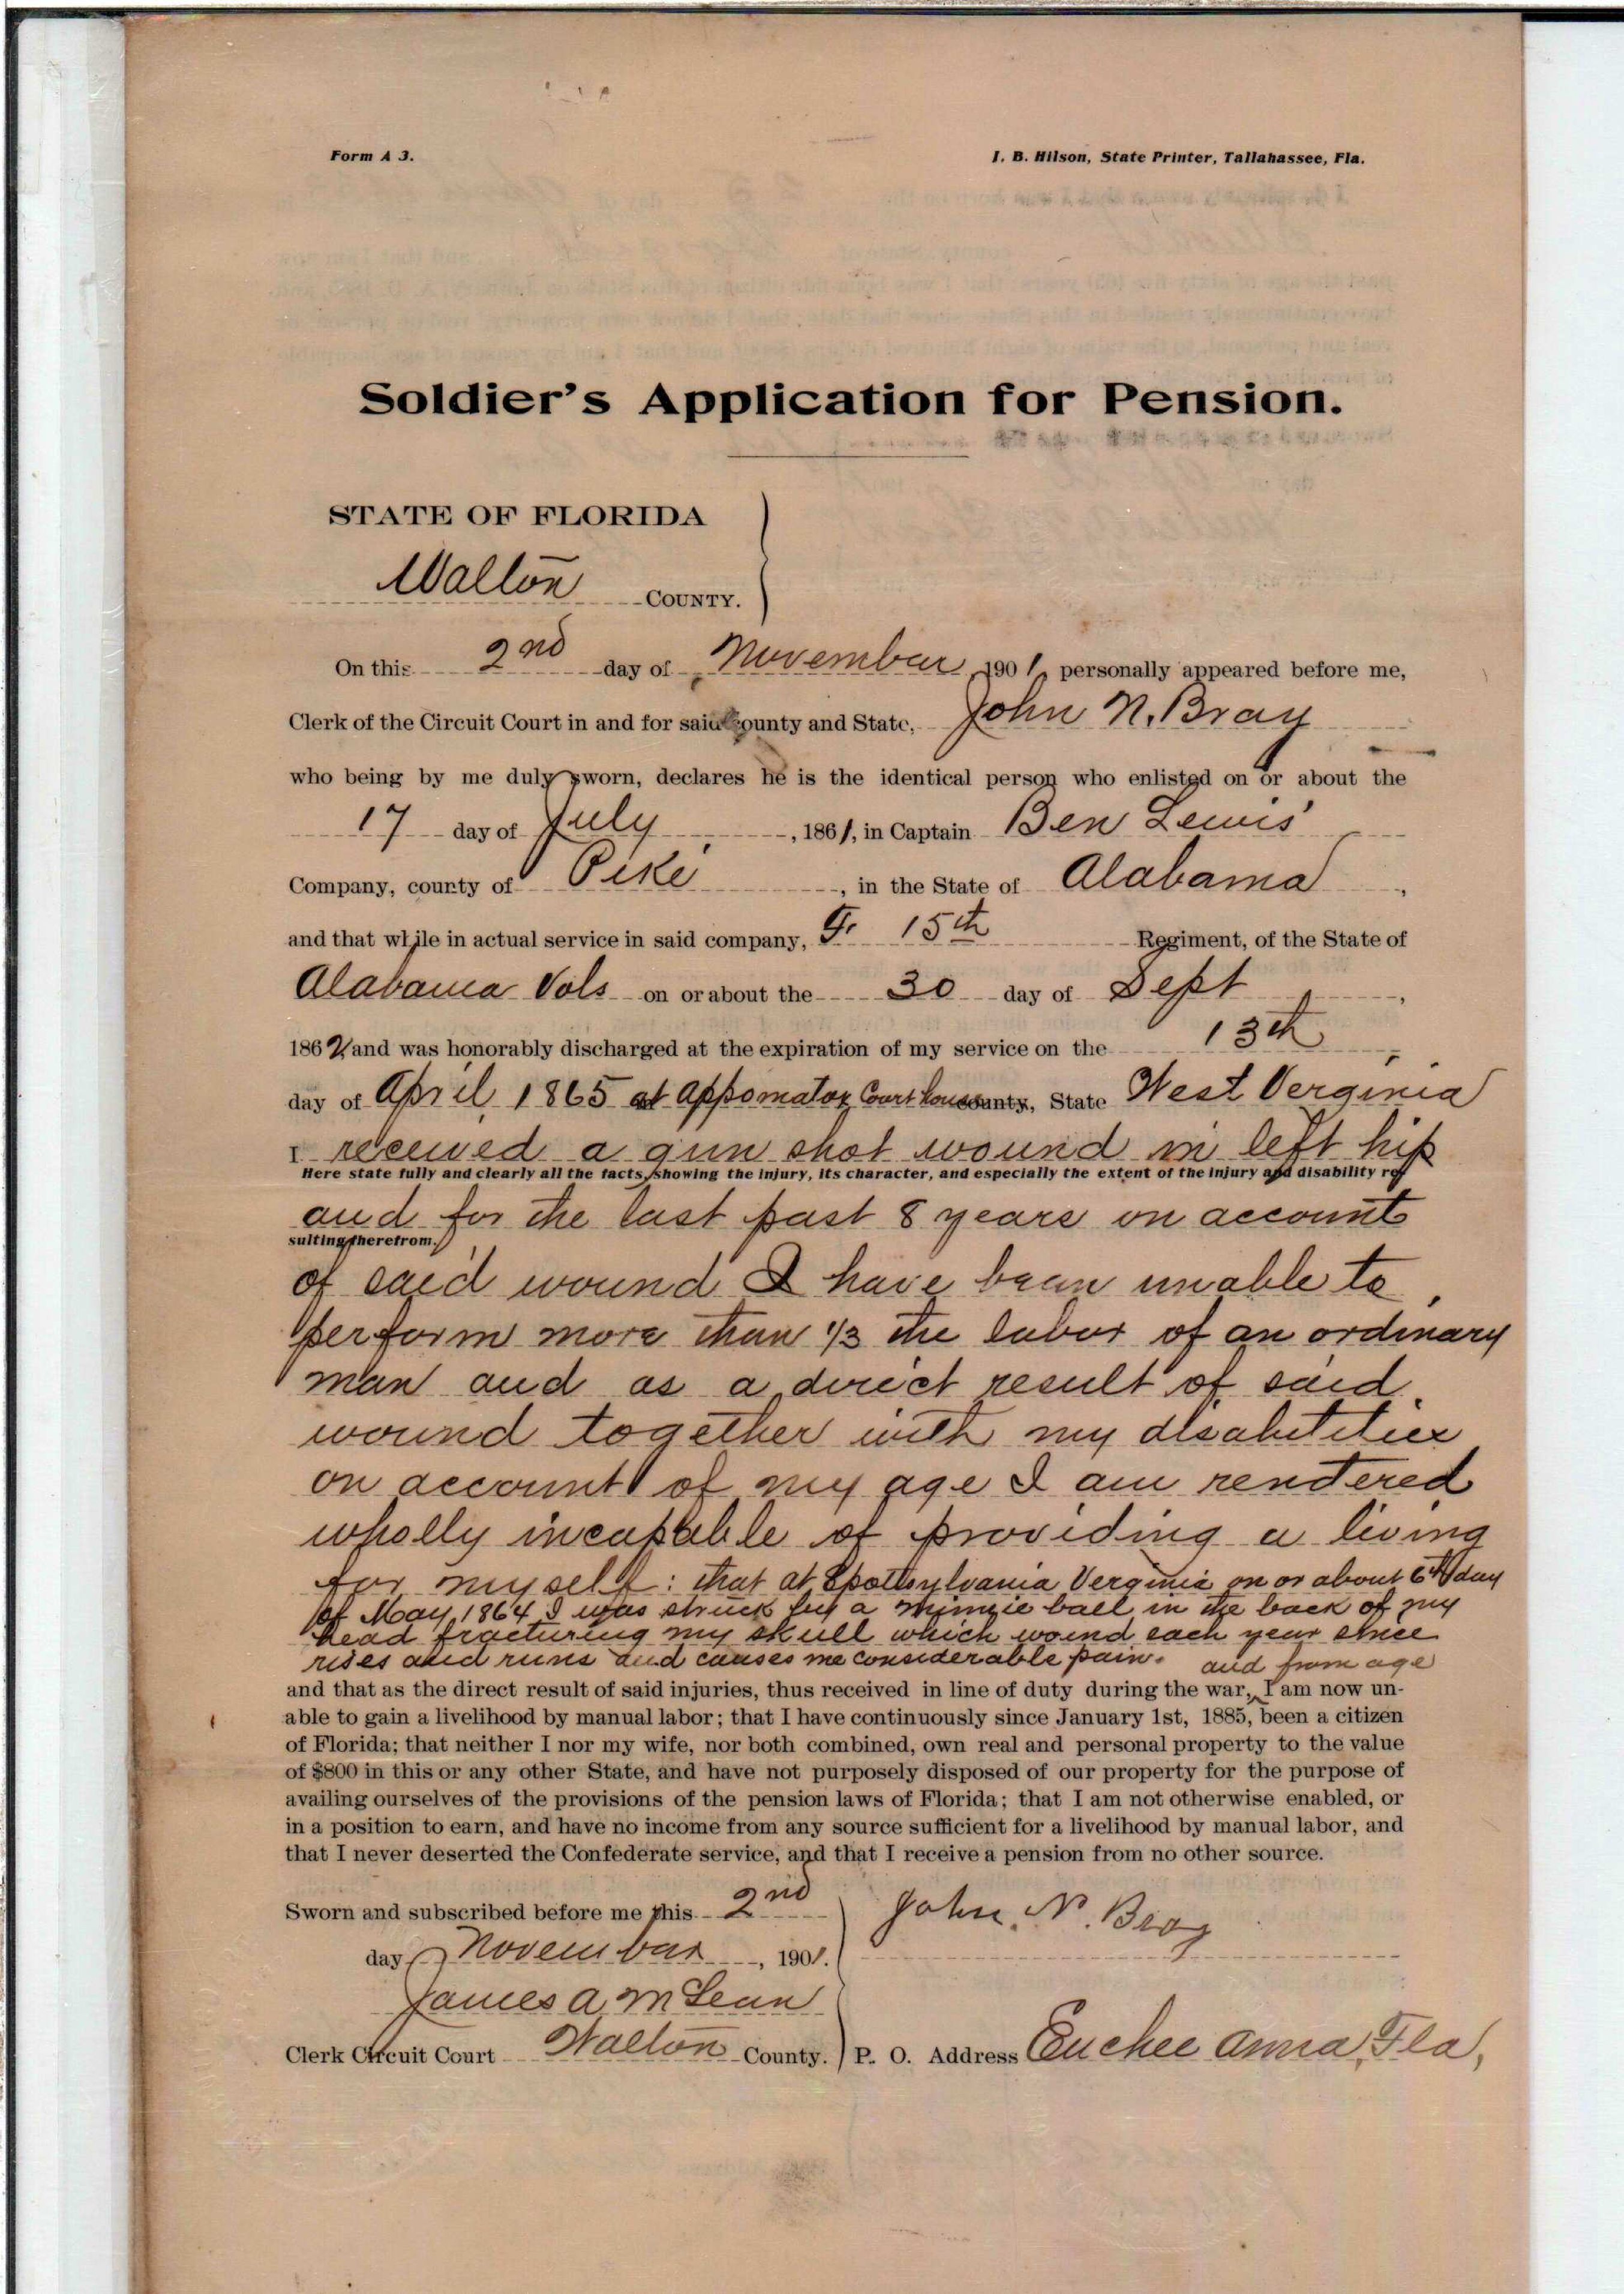 Form A 3.
I. B. Hilson, State Printer, Tallahassee, Fla.
Soldier's Application for Pension.
STATE OF FLORIDA
Walton COUNTY.
On this 2nd day of November, 1901, personally appeared before me,
Clerk of the Circuit Court in and for said county and State, John N. Bray
who being by me duly sworn, declares he is the identical person who enlisted on or about the
17 day of July, 1861, in Captain Ben Lewis'
Company, county of Pike, in the State of Alabama,
and that while in actual service in said company, 15th Regiment, of the State of
Alabama Vols on or about the 30 day of Sept,
1862 and was honorably discharged at the expiration of my service on the 13th
day of April, 1865 at Appomatox Court house county, State West Verginia
I received a gun shot wound in left hip
Here state fully and clearly all the facts, showing the injury, its character, and especially the extent of the injury and disability re-
and for the last past 8 years on account
sulting therefrom.
of said wound I have been unable to
perform more than 1/3 the labor of an ordinary
man and as a direct result of said
wound together with my disabilities
on account of my age I am rendered
wholly incapable of providing a living
for myself: that at Spottsylvania Verginia on or about 6th day
of May, 1864 I was struck by a minnie ball in the back of my
head fracturing my skull which wound each year since
rises and runs and causes me considerable pain. and from age
and that as the direct result of said injuries, thus received in line of duty during the war, I am now un-
able to gain a livelihood by manual labor; that I have continuously since January 1st, 1885, been a citizen
of Florida; that neither I nor my wife, nor both combined, own real and personal property to the value
of $800 in this or any other State, and have not purposely disposed of our property for the purpose of
availing ourselves of the provisions of the pension laws of Florida; that I am not otherwise enabled, or
in a position to earn, and have no income from any source sufficient for a livelihood by manual labor, and
that I never deserted the Confederate service, and that I receive a pension from no other source.
Sworn and subscribed before me this 2nd
John. N. Bray
day November, 1901.
James A McLean
Clerk Circuit Court Walton County.
P. O. Address Euchee Anna, Fla,